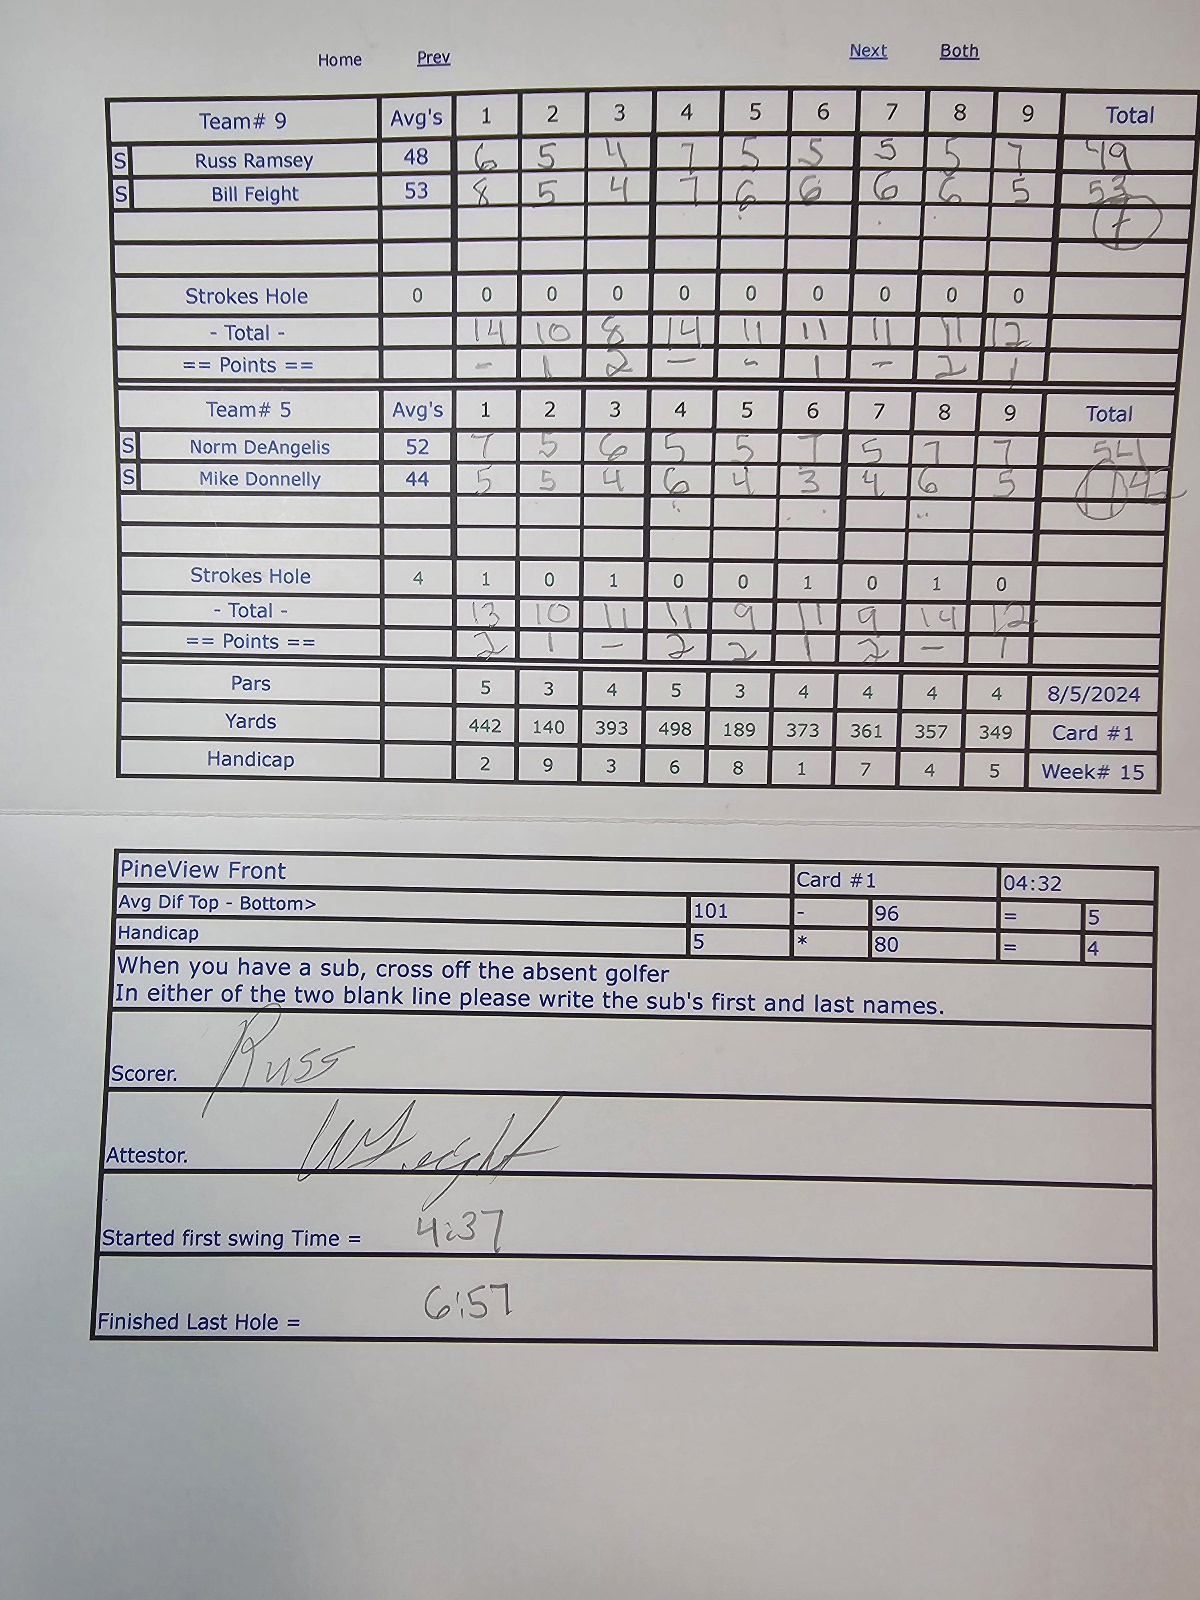 Home Prev Next Both
Team# 9 Avg's 1 2 3 4 5 6 7 8 9 Total
S Russ Ramsey 48 6 5 4 7 5 5 5 5 7 49
S Bill Feight 53 8 5 4 7 6 6 6 6 5 53
7
Strokes Hole 0 0 0 0 0 0 0 0 0 0
- Total - 14 10 8 14 11 11 11 11 12
== Points == - 1 2 - - 1 - 2 1
Team# 5 Avg's 1 2 3 4 5 6 7 8 9 Total
S Norm DeAngelis 52 7 5 6 5 5 7 5 7 7 54
S Mike Donnelly 44 5 5 4 6 4 3 4 6 5 11 42
Strokes Hole 4 1 0 1 0 0 1 0 1 0
- Total - 13 10 11 11 9 11 9 14 12
== Points == 2 1 - 2 2 1 2 - 1
Pars 5 3 4 5 3 4 4 4 4 8/5/2024
Yards 442 140 393 498 189 373 361 357 349 Card #1
Handicap 2 9 3 6 8 1 7 4 5 Week# 15
PineView Front Card #1 04:32
Avg Dif Top - Bottom> 101 - 96 = 5
Handicap 5 * 80 = 4
When you have a sub, cross off the absent golfer
In either of the two blank line please write the sub's first and last names.
Scorer. Russ
Attestor. W Feight
Started first swing Time = 4:37
Finished Last Hole = 6:57